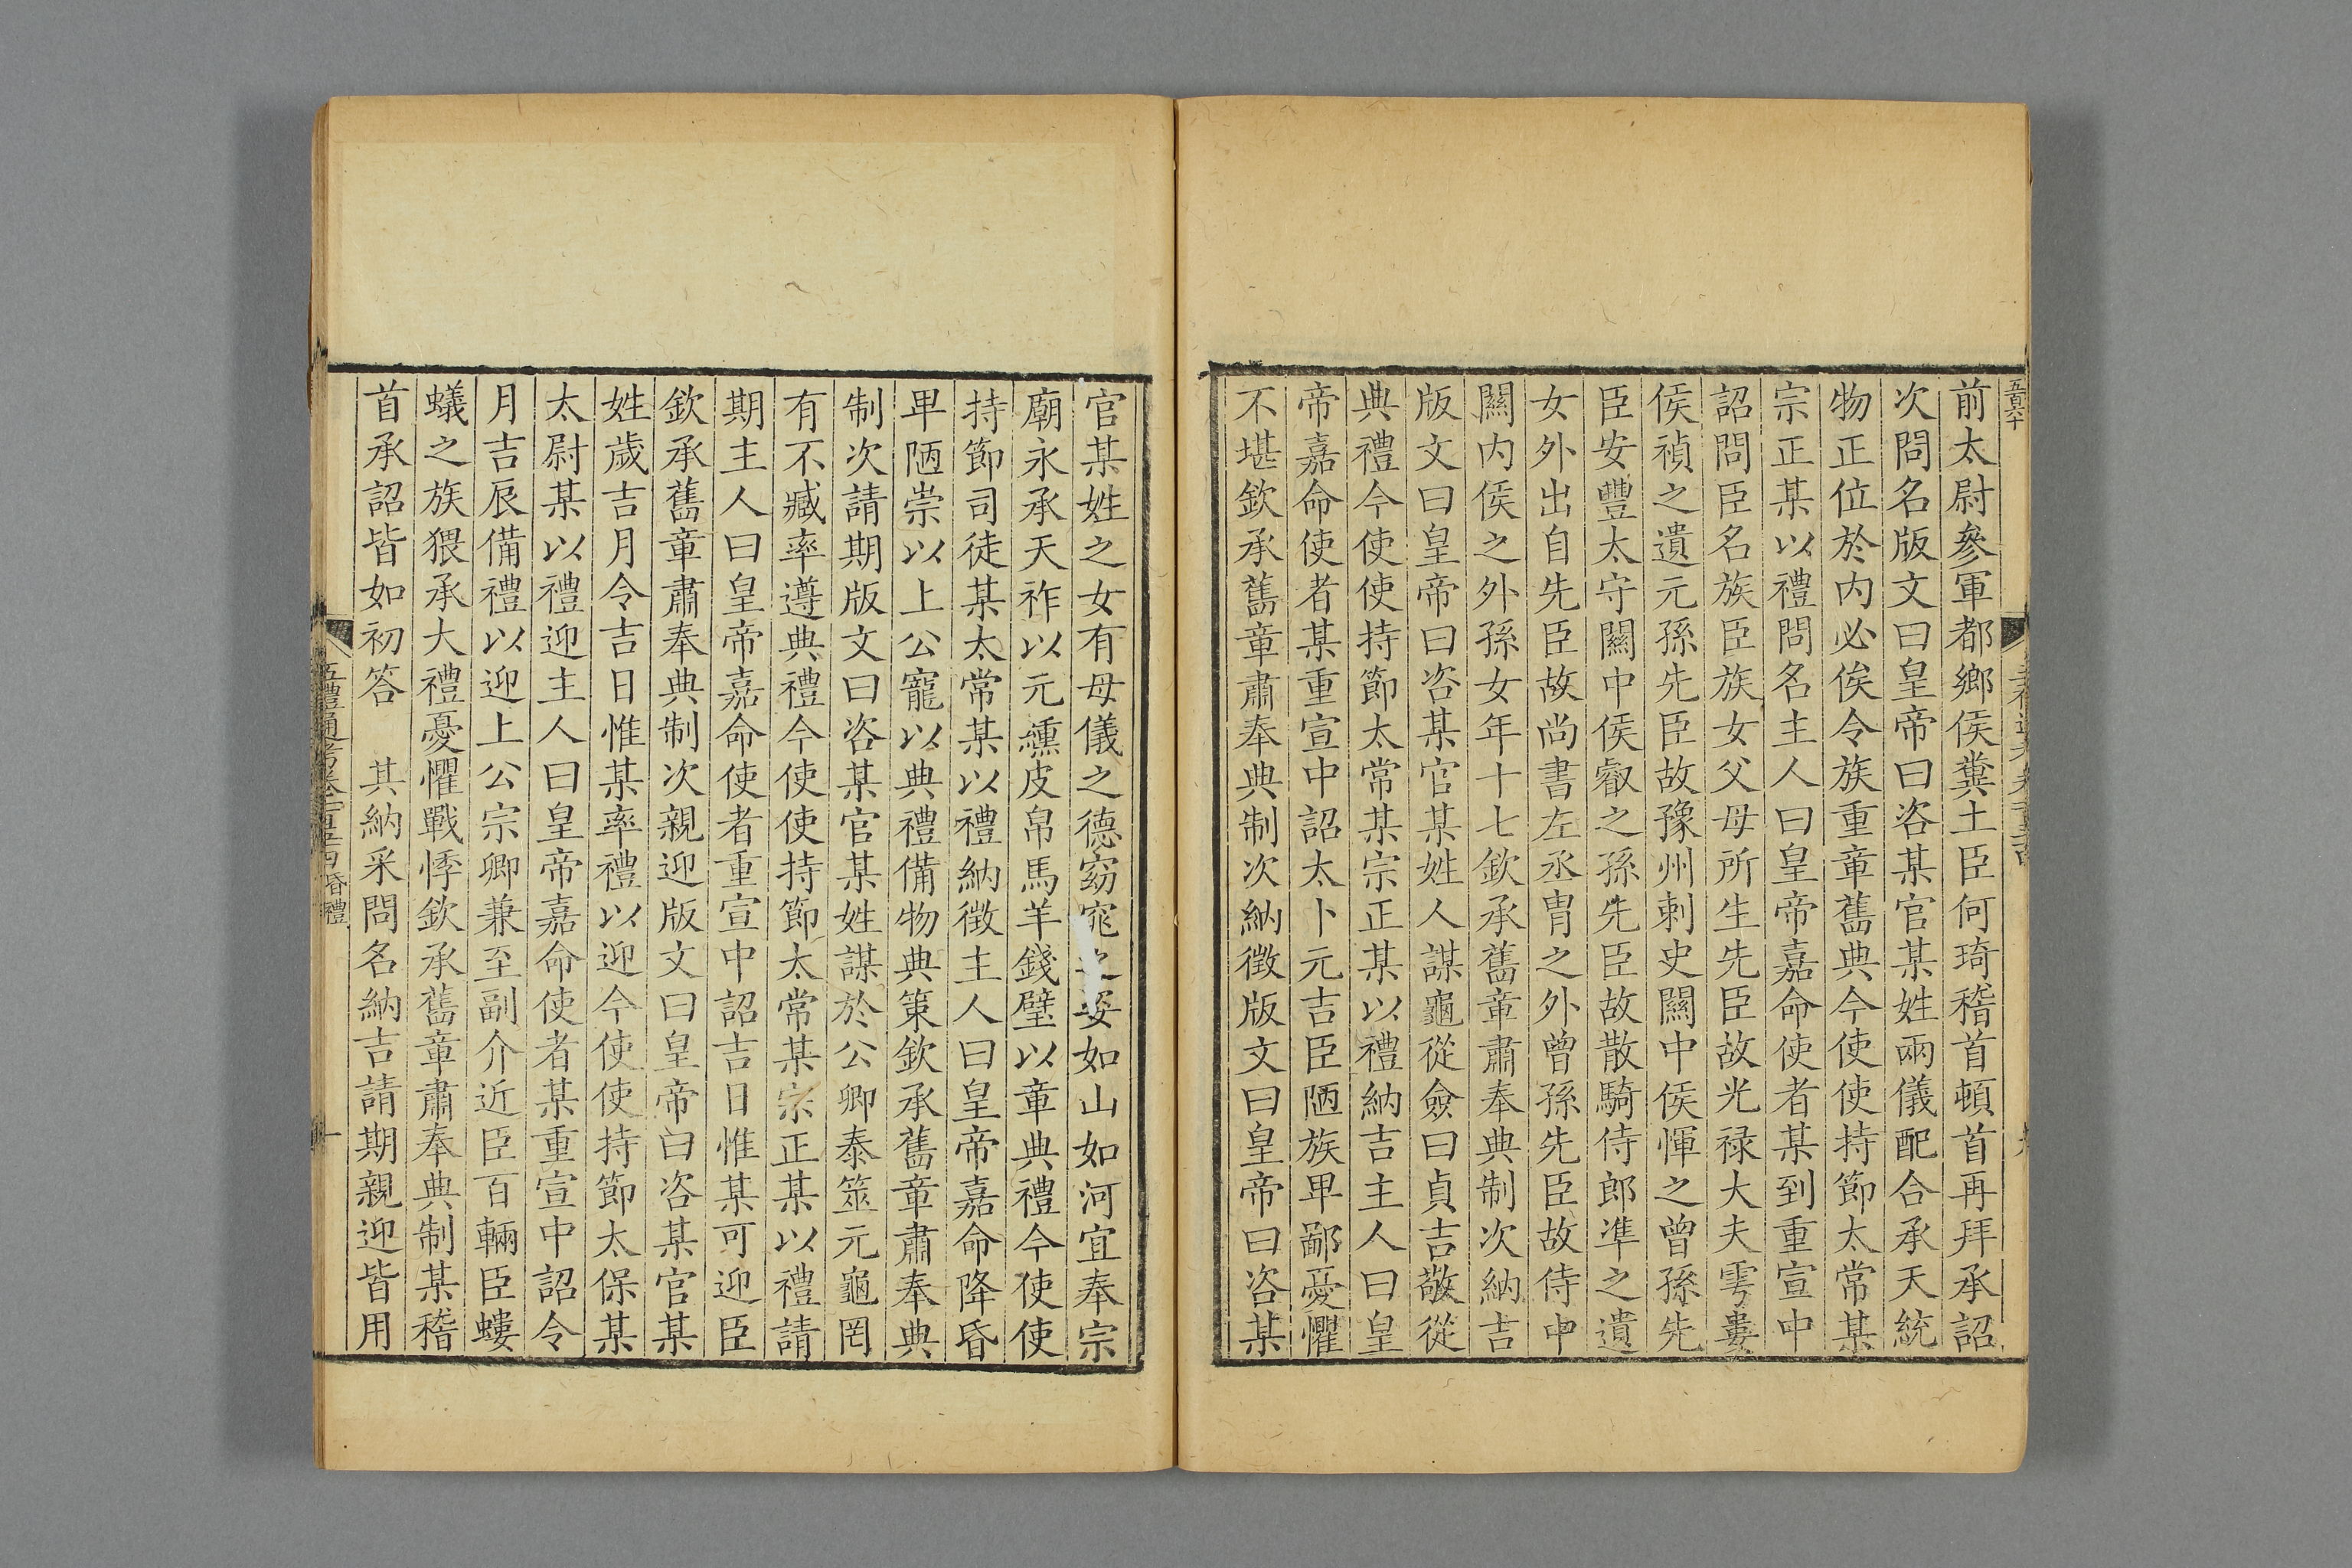 前太尉參軍都鄉侯糞土臣何琦稽首頓首再拜承詔
次問名版文曰皇帝曰咨某官某姓兩儀配合承天統
物正位於内必俟令族重章舊典今使使持節太常某
宗正某以禮問名主人曰皇帝嘉命使者某到重宣中
詔問臣名族臣族女父母所生先臣故光禄大夫雩婁
侯禎之遺元孫先臣故豫州刺史關中侯惲之曾孫先
臣安豐太守關中侯叡之孫先臣故散騎侍郎準之遺
女外出自先臣故尚書左丞胄之外曾孫先臣故侍中
關内侯之外孫女年十七欽承舊章肅奉典制次納吉
版文曰皇帝曰咨某官某姓人謀龜從僉曰貞吉敬從
典禮今使使持節太常某宗正某以禮納吉主人曰皇
帝嘉命使者某重宣中詔太卜元吉臣陋族卑鄙憂懼
不堪欽承舊章肅奉典制次納徵版文曰皇帝曰咨某
官某姓之女有母儀之德窈窕之姿如山如河宜奉宗
廟永承天祚以元纁皮帛馬羊錢璧以章典禮今使使
持節司徒某太常某以禮納徵主人曰皇帝嘉命降昏
卑陋崇以上公寵以典禮備物典策欽承舊章肅奉典
制次請期版文曰咨某官某姓謀於公卿泰筮元龜罔
有不臧率遵典禮今使使持節太常某宗正某以禮請
期主人曰皇帝嘉命使者重宣中詔吉日惟某可迎臣
欽承舊章肅奉典制次親迎版文曰皇帝曰咨某官某
姓歲吉月令吉日惟某率禮以迎今使使持節太保某
太尉某以禮迎主人曰皇帝嘉命使者某重宣中詔令
月吉辰備禮以迎上公宗卿兼至副介近臣百輛臣螻
蟻之族猥承大禮憂懼戰悸欽承舊章肅奉典制某稽
首承詔皆如初答　其納采問名納吉請期親迎皆用
五禮通考卷一百五十四 昏禮